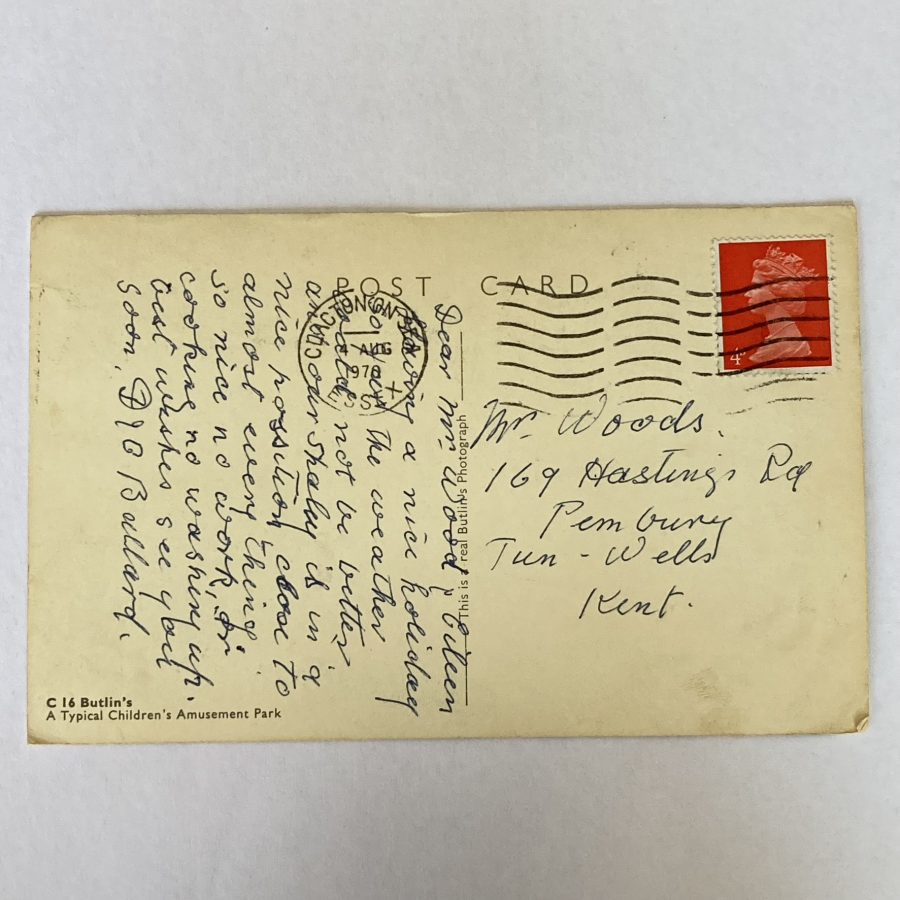 POST CARD
CLACTON ON SEA
AUG
1970
ESSEX
4d
Dear Mr Wood, Eileen
Having a nice holiday
so far the weather
could not be better
and our Shaley is in a
nice possition, close to
almost every thing.
so nice no work, or
cooking no washing up.
best wishes see you
soon, D J C Ballard.
This is a real Butlin's Photograph
Mr. Woods.
169 Hastings Rd
Pembury
Tun - Wells
Kent.
C 16 Butlin's
A Typical Children's Amusement Park